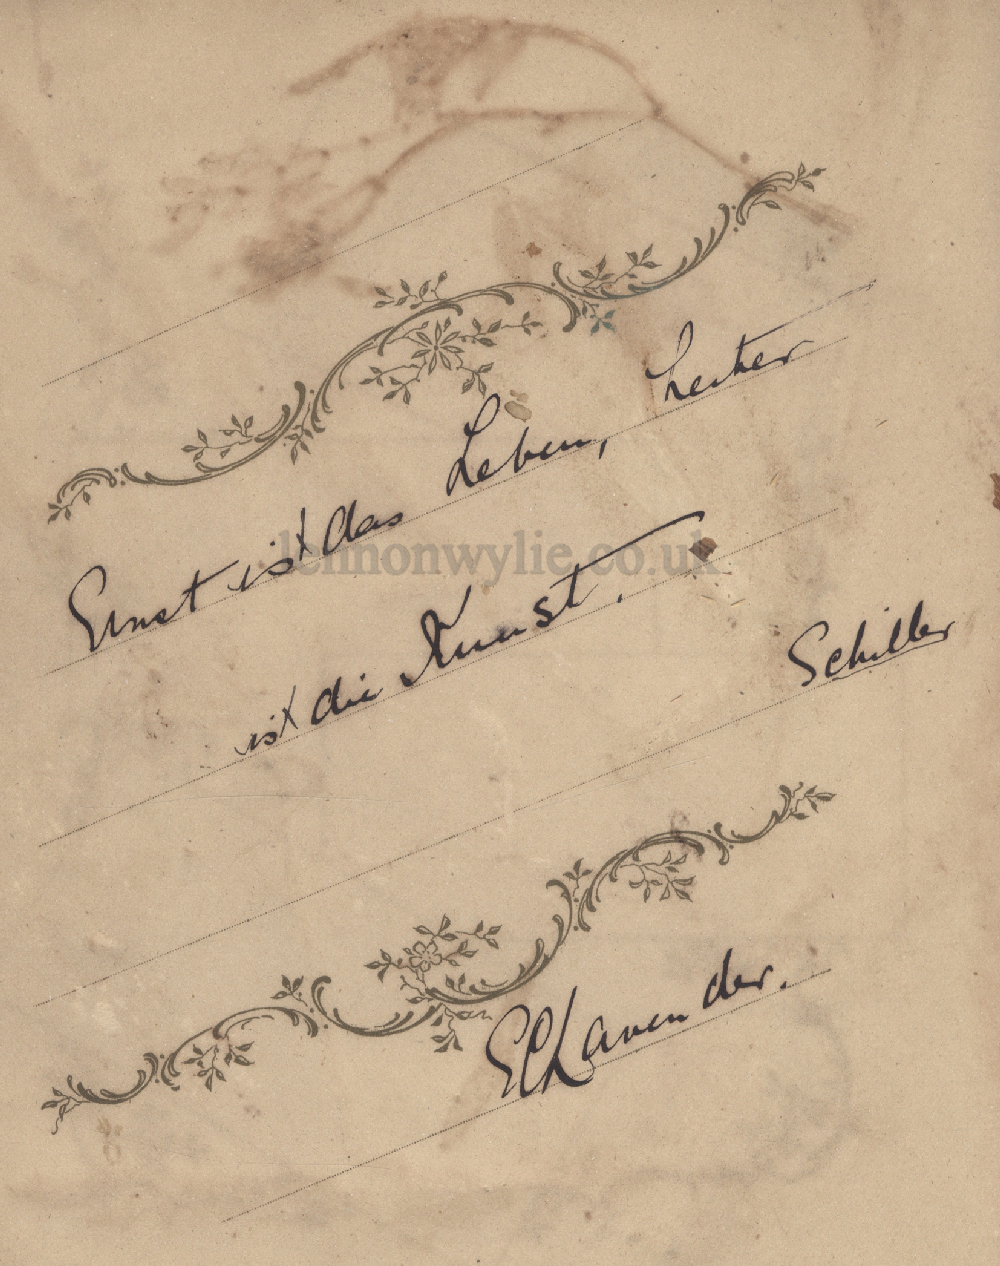 Ernst ist das Leben, heiter
ist die Kunst.
Schiller
E C Lavender.
lennonwylie.co.uk